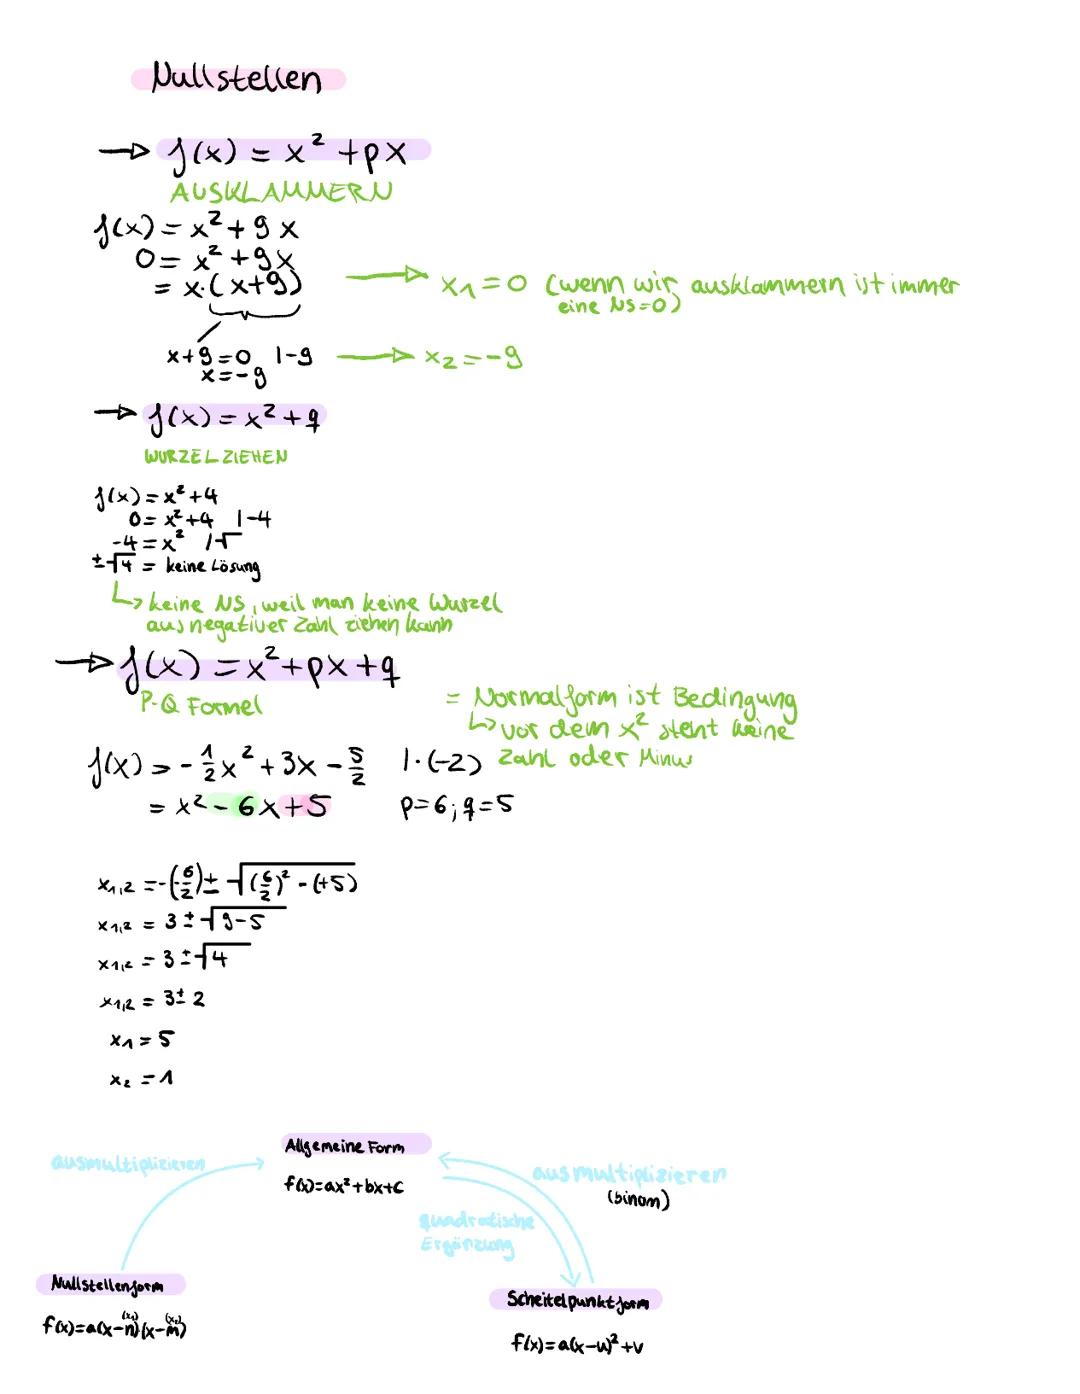 Nullstellen
→ f(x) = x² + px
AUSKLAMMERN
f(x) = x² + 9x
0 = x² + 9x
= x·(x+9) → x₁ = 0 (wenn wir ausklammern ist immer
eine NS=0)
x+9=0 |-9 → x₂ = -9
x=-9
→ f(x) = x² + q
WURZEL ZIEHEN
f(x) = x² + 4
0 = x² + 4 |-4
-4 = x² |√
±√4 = keine Lösung
↳ keine NS, weil man keine Wurzel
aus negativer Zahl ziehen kann
→ f(x) = x² + px + q
P-Q Formel
= Normalform ist Bedingung
↳ vor dem x² steht keine
Zahl oder Minus
f(x) = -1/2 x² + 3x - 5/2 |·(-2)
= x² - 6x + 5 p=6; q=5
x₁,₂ = -(-6/2) ± √((6/2)² - (+5))
x₁,₂ = 3 ± √(9-5)
x₁,₂ = 3 ± √4
x₁,₂ = 3 ± 2
x₁ = 5
x₂ = 1
Allgemeine Form
f(x)=ax²+bx+c
ausmultiplizieren
ausmultiplizieren
(binom)
quadratische
Ergänzung
Nullstellenform
f(x)=a(x-n)(x-m)
(x₁) (x₂)
Scheitelpunktform
f(x)=a(x-u)²+v